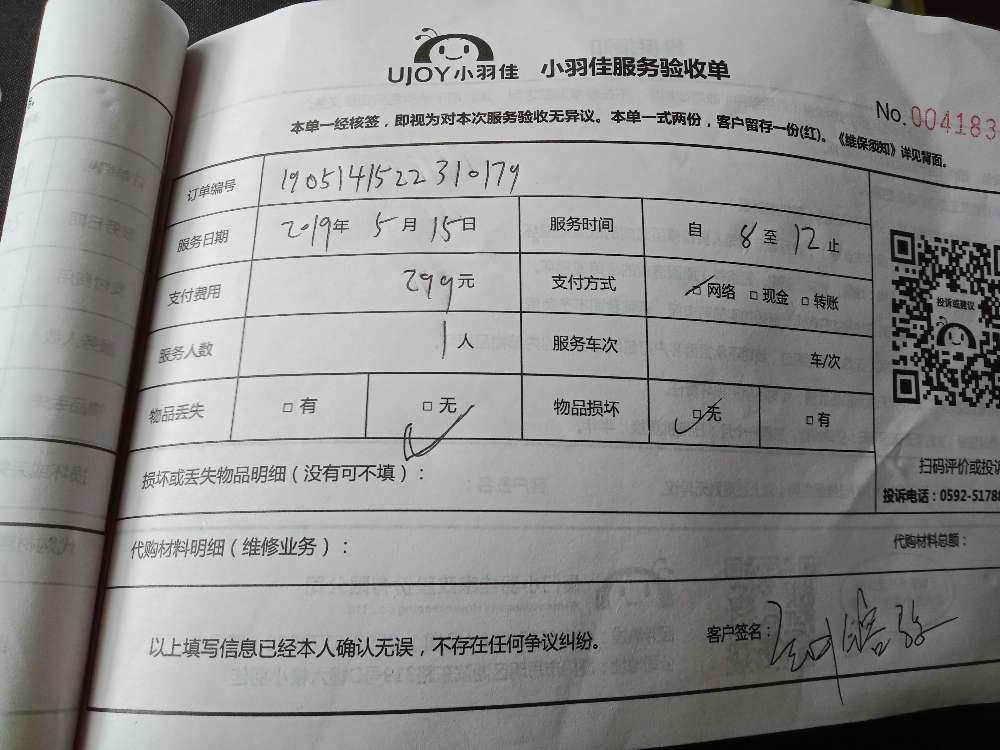 UJOY小羽佳 小羽佳服务验收单
No.004183
本单一经核签，即视为对本次服务验收无异议。本单一式两份，客户留存一份(红)。《维保须知》详见背面。
订单编号 1905141522310179
服务日期 2019年 5月 15日 服务时间 自 8 至 12 止
支付费用 299元 支付方式 □网络 □现金 □转账
投诉或建议
服务人数 1人 服务车次 车/次
物品丢失 □有 □无 物品损坏 □无 □有
扫码评价或投诉
损坏或丢失物品明细（没有可不填）：
投诉电话：0592-5178
代购材料明细（维修业务）： 代购材料总额：
以上填写信息已经本人确认无误，不存在任何争议纠纷。 客户签名：